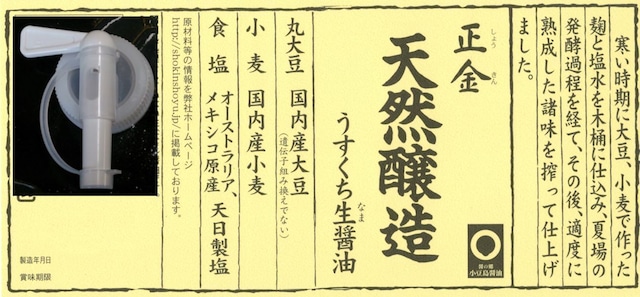 寒い時期に大豆、小麦で作った
麹と塩水を木桶に仕込み、夏場の
発酵過程を経て、その後、適度に
熟成した諸味を搾って仕上げ
ました。
正金
しょう きん
天然醸造
うすくち生醤油
なま
醤の郷
小豆島醤油
丸大豆 国内産大豆
(遺伝子組み換えでない)
小麦 国内産小麦
食塩 オーストラリア、
メキシコ原産 天日製塩
原材料等の情報を弊社ホームページ
http://shokinshoyu.jp/に掲載しております。
製造年月日
賞味期限